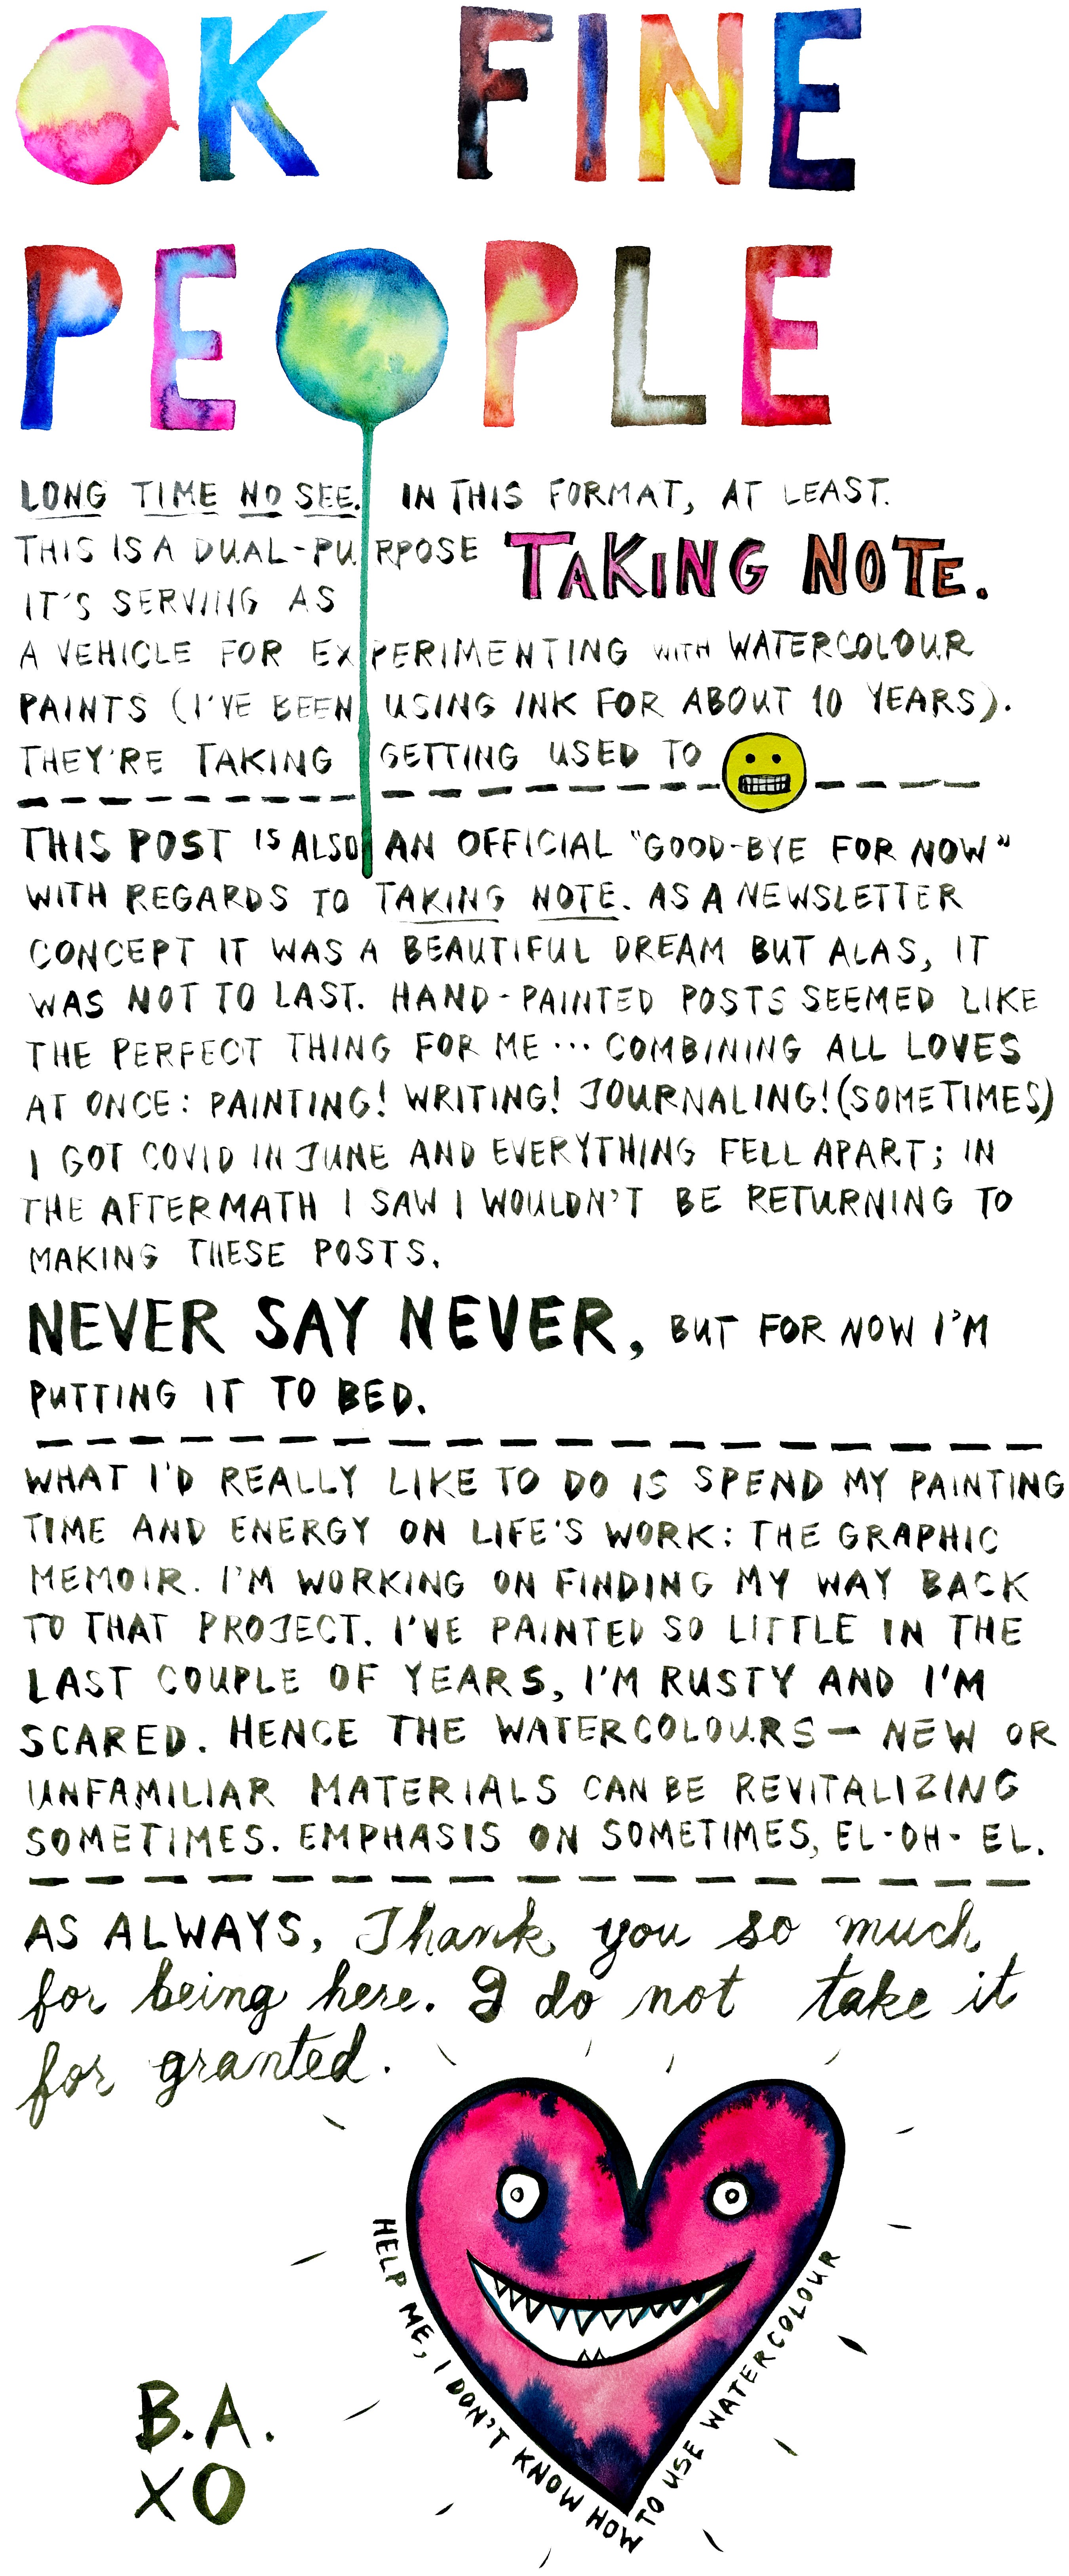 OK FINE
PEOPLE
LONG TIME NO SEE. IN THIS FORMAT, AT LEAST.
THIS IS A DUAL-PURPOSE TAKING NOTE.
IT'S SERVING AS
A VEHICLE FOR EXPERIMENTING WITH WATERCOLOUR
PAINTS (I'VE BEEN USING INK FOR ABOUT 10 YEARS).
THEY'RE TAKING GETTING USED TO
THIS POST IS ALSO AN OFFICIAL "GOOD-BYE FOR NOW"
WITH REGARDS TO TAKING NOTE. AS A NEWSLETTER
CONCEPT IT WAS A BEAUTIFUL DREAM BUT ALAS, IT
WAS NOT TO LAST. HAND-PAINTED POSTS SEEMED LIKE
THE PERFECT THING FOR ME ... COMBINING ALL LOVES
AT ONCE: PAINTING! WRITING! JOURNALING! (SOMETIMES)
I GOT COVID IN JUNE AND EVERYTHING FELL APART; IN
THE AFTERMATH I SAW I WOULDN'T BE RETURNING TO
MAKING THESE POSTS.
NEVER SAY NEVER, BUT FOR NOW I'M
PUTTING IT TO BED.
WHAT I'D REALLY LIKE TO DO IS SPEND MY PAINTING
TIME AND ENERGY ON LIFE'S WORK: THE GRAPHIC
MEMOIR. I'M WORKING ON FINDING MY WAY BACK
TO THAT PROJECT. I'VE PAINTED SO LITTLE IN THE
LAST COUPLE OF YEARS, I'M RUSTY AND I'M
SCARED. HENCE THE WATERCOLOURS — NEW OR
UNFAMILIAR MATERIALS CAN BE REVITALIZING
SOMETIMES. EMPHASIS ON SOMETIMES, EL-OH-EL.
AS ALWAYS, Thank you so much
for being here. I do not take it
for granted.
HELP ME, I DON'T KNOW HOW TO USE WATERCOLOUR
B.A.
XO